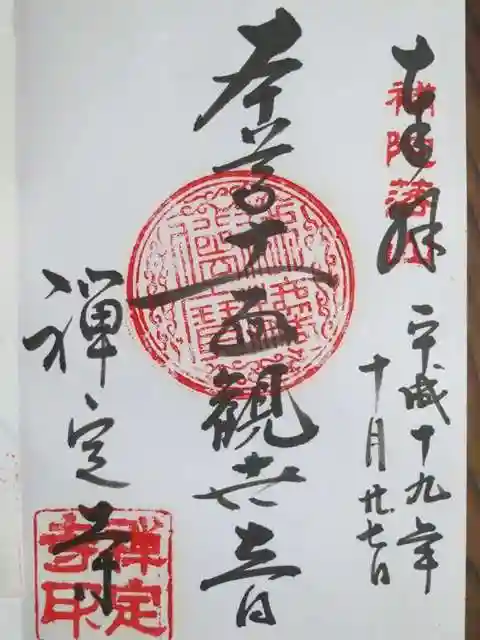 奉拝
補陀落山
平成十九年
十月廿七日
本尊十一面観世音
禅定寺
禅定寺印